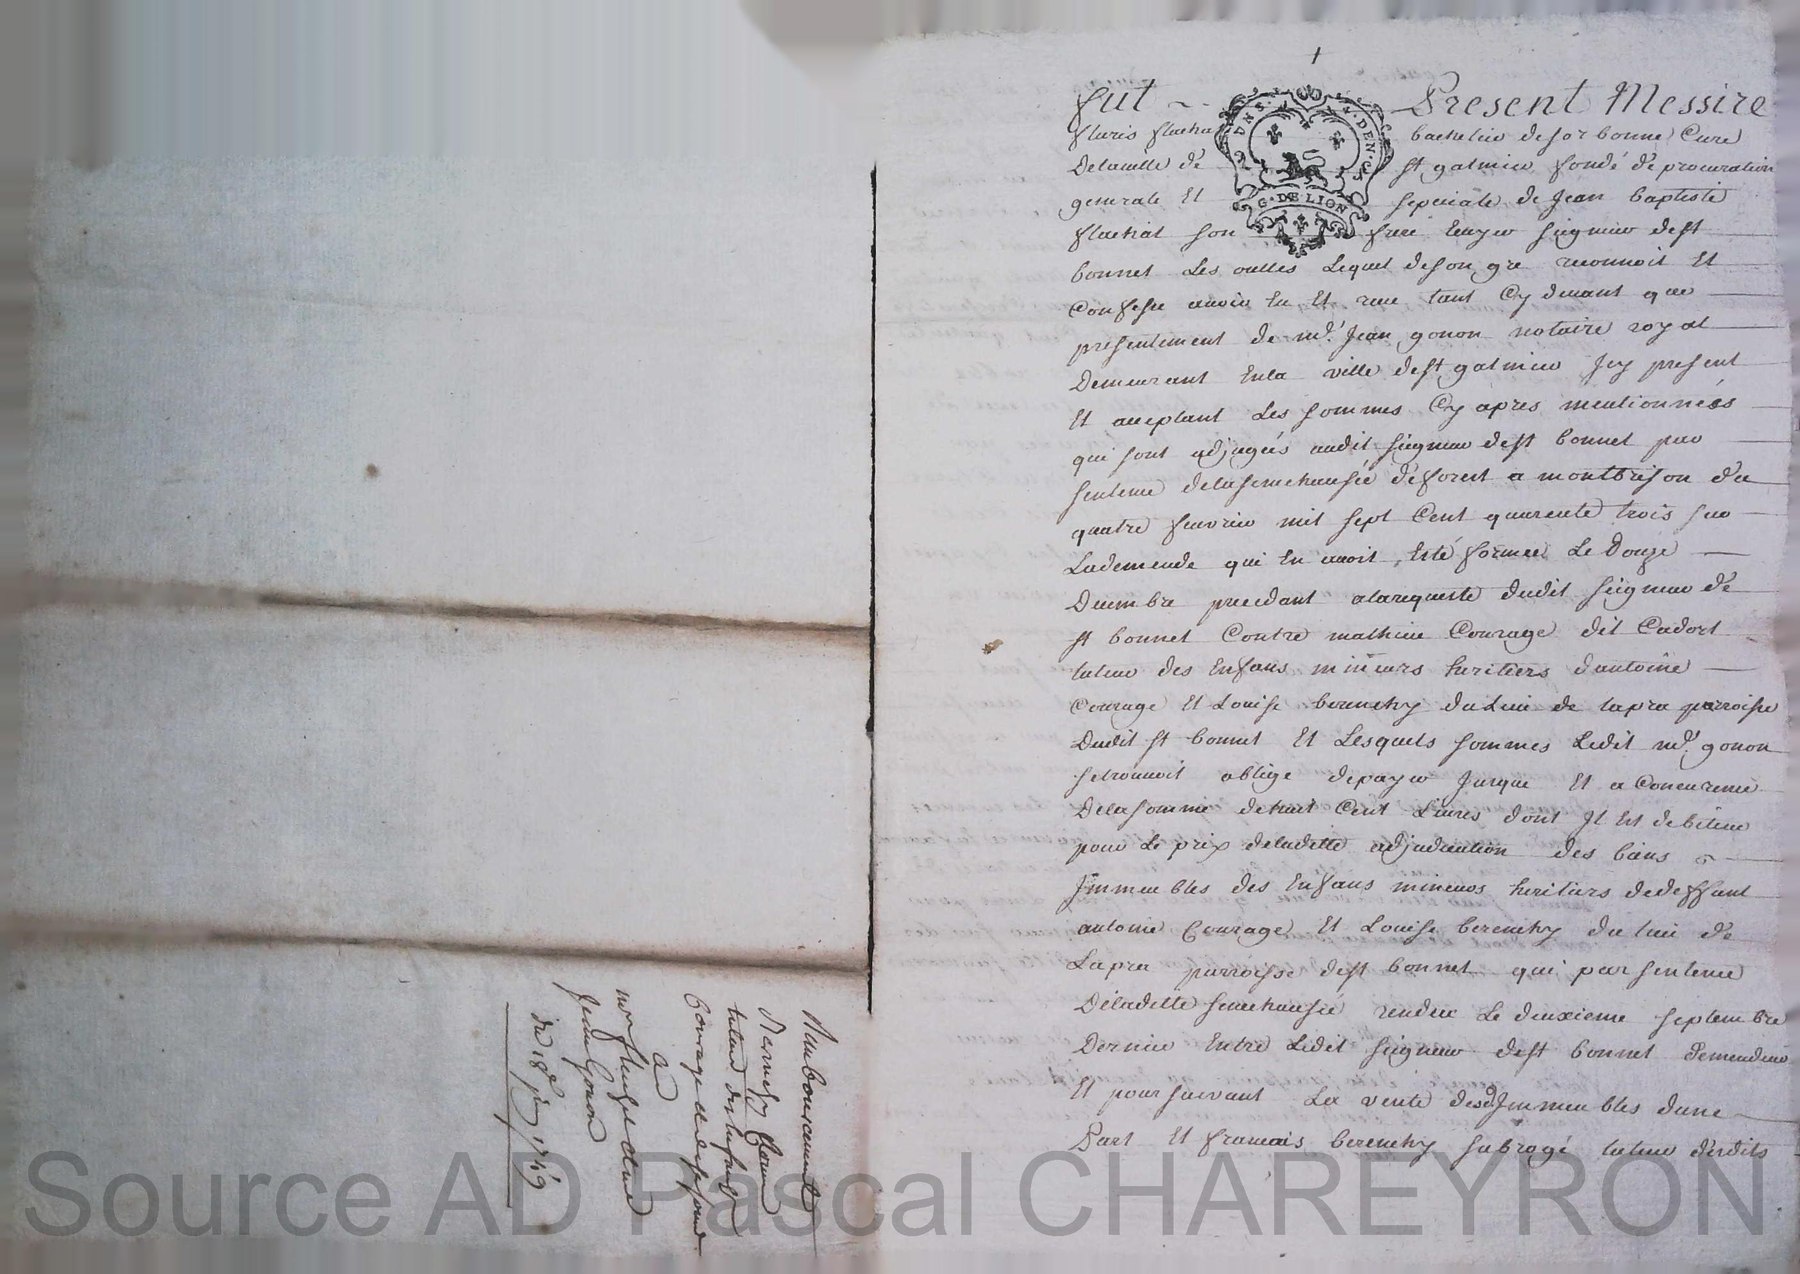 fut Present Messire
fluris flachat bachelier desorbonne Curé
Delaville dé st galmier fondé dé procuration
generale Et speciale de Jean baptiste
flachat son frere Ecuyer seigneur dest
bonnet Les oulles Lequel deson gre reconnoit Et
Confesse avoir Eu Et reçu tant Cy devant que
présentement de md. Jean gonon notaire royal
Demeurant Enla ville dest galmier Jcy present
Et acceptant Les sommes Cy apres mentionnées
qui sont adjugées audit seigneur dest bonnet par
sentence delasenechaussée déforest a montbrison du
quatre fevrier mil sept Cent quarente trois sur
Lademende qui En avoit, Esté formée Le Douze
Decembre precedant alarequeste dudit seigneur dé
st bonnet Contre mathieu Courage dit Cadort
tuteur des Enfans mineurs heritiers dantoine
Courage Et Louise berenchy du Lieu de lapra parroisse
Dudit st bonnet Et Lesquels sommes Ledit md. gonon
setrouvoit obligé depayer Jusque Et a Concurence
Delasomme dehuit Cent Livres dont Jl Est debiteur
pour Le prix deladitte adjudication des biens
Jmmeubles des Enfans mineurs heritiers dedeffunt
antoine Courage Et Louise berenchy du lieu dé
Lapra parroisse dest bonnet qui par sentence
Déladitte senechaussée rendue Le deuxieme septembre
Dernier Entre Ledit seigneur dest bonnet demendeur
Et poursuivant La vente desd Jmmeubles dune
Part Et francois berenchy subrogé tuteur desdits
Remboursement
tuteur des Enfans
Courage
a
mor flachat Curé
Jean Gonon
du 18e 1749
G. DE LION
Source AD Pascal CHAREYRON